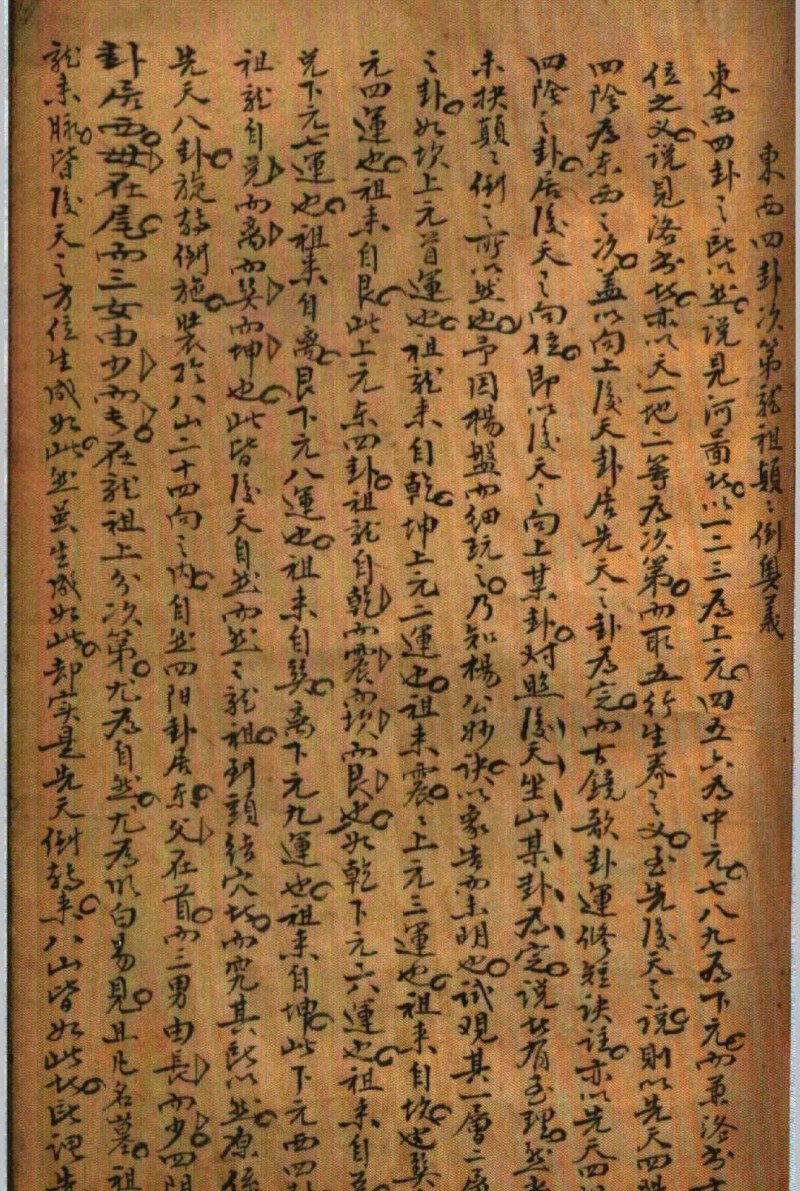 東西四卦次第龍祖顛〻倒奧義
東西四卦之所以然說見河圖故以一二三為上元四五六為中元七八九為下元而兼洛书
位之义說見洛书故亦以天一地二等為次第而取五行生養之义至先後天之說則以先天四
四陰為东西之次盖以向上後天卦居先天之卦為定而古鏡歌卦運修短诀註亦以先天四
四陰之卦居後天之向位即以後天之向上某卦对照後天坐山某卦為定說故有至理然
未抉顛〻倒之所以然也予因楊盤而細玩之乃知楊公妙诀以象告而未明也试观其一層二
之卦如坎上元首運也祖龍来自乾坤上元二運也祖来震〻上元三運也祖来自坎也巽
元四運也祖来自艮此上元东四卦祖龍自乾而震而坎而艮也如乾下元六運也祖来自
兑下元七運也祖来自离艮下元八運也祖来自巽离下元九運也祖来自坤此下元西四
祖龍自兑而离而巽而坤也此皆後天自然而然之龍祖到頭结穴故而究其所以然原係
先天八卦旋转倒施装於八山二十四向之内自然四阳卦居东父在首而三男由長而少四阴
卦居西母在尾而三女由少而長在龍祖上分次第尤為自然尤為明白易見且凡名墓祖
龍来脉皆後天之方位生成如此然其生成如此却实是先天倒转来八山皆如此故所谓先